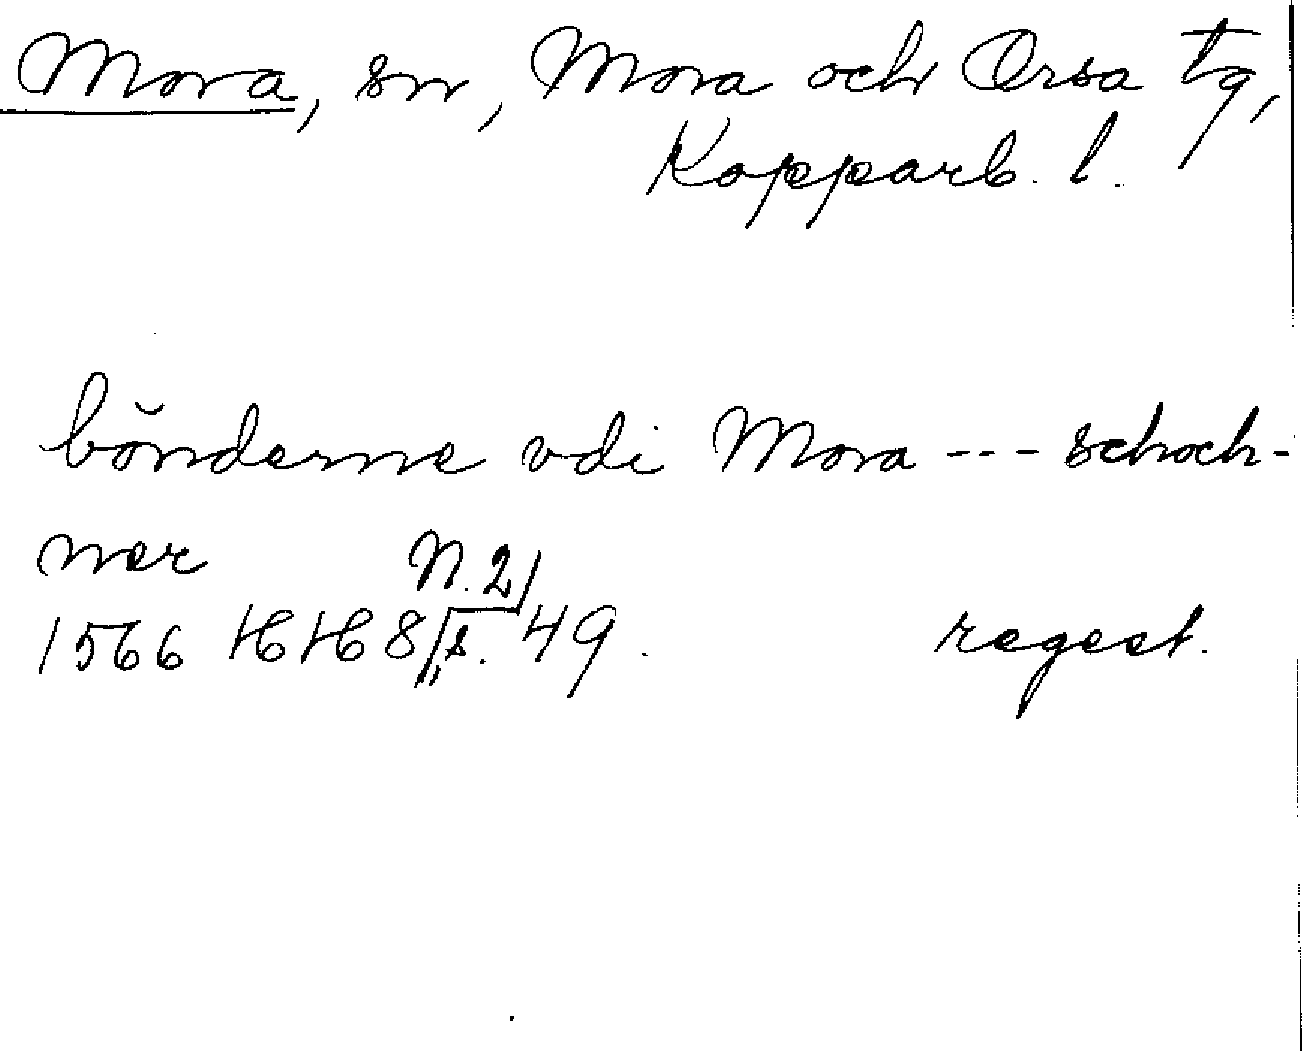 Mora, sn, Mora och Orsa tg,
Kopparb. l.
bŏnderne vdi Mora --- schoch-
ner N. 2
1566 HH 8, s. 49. regest.